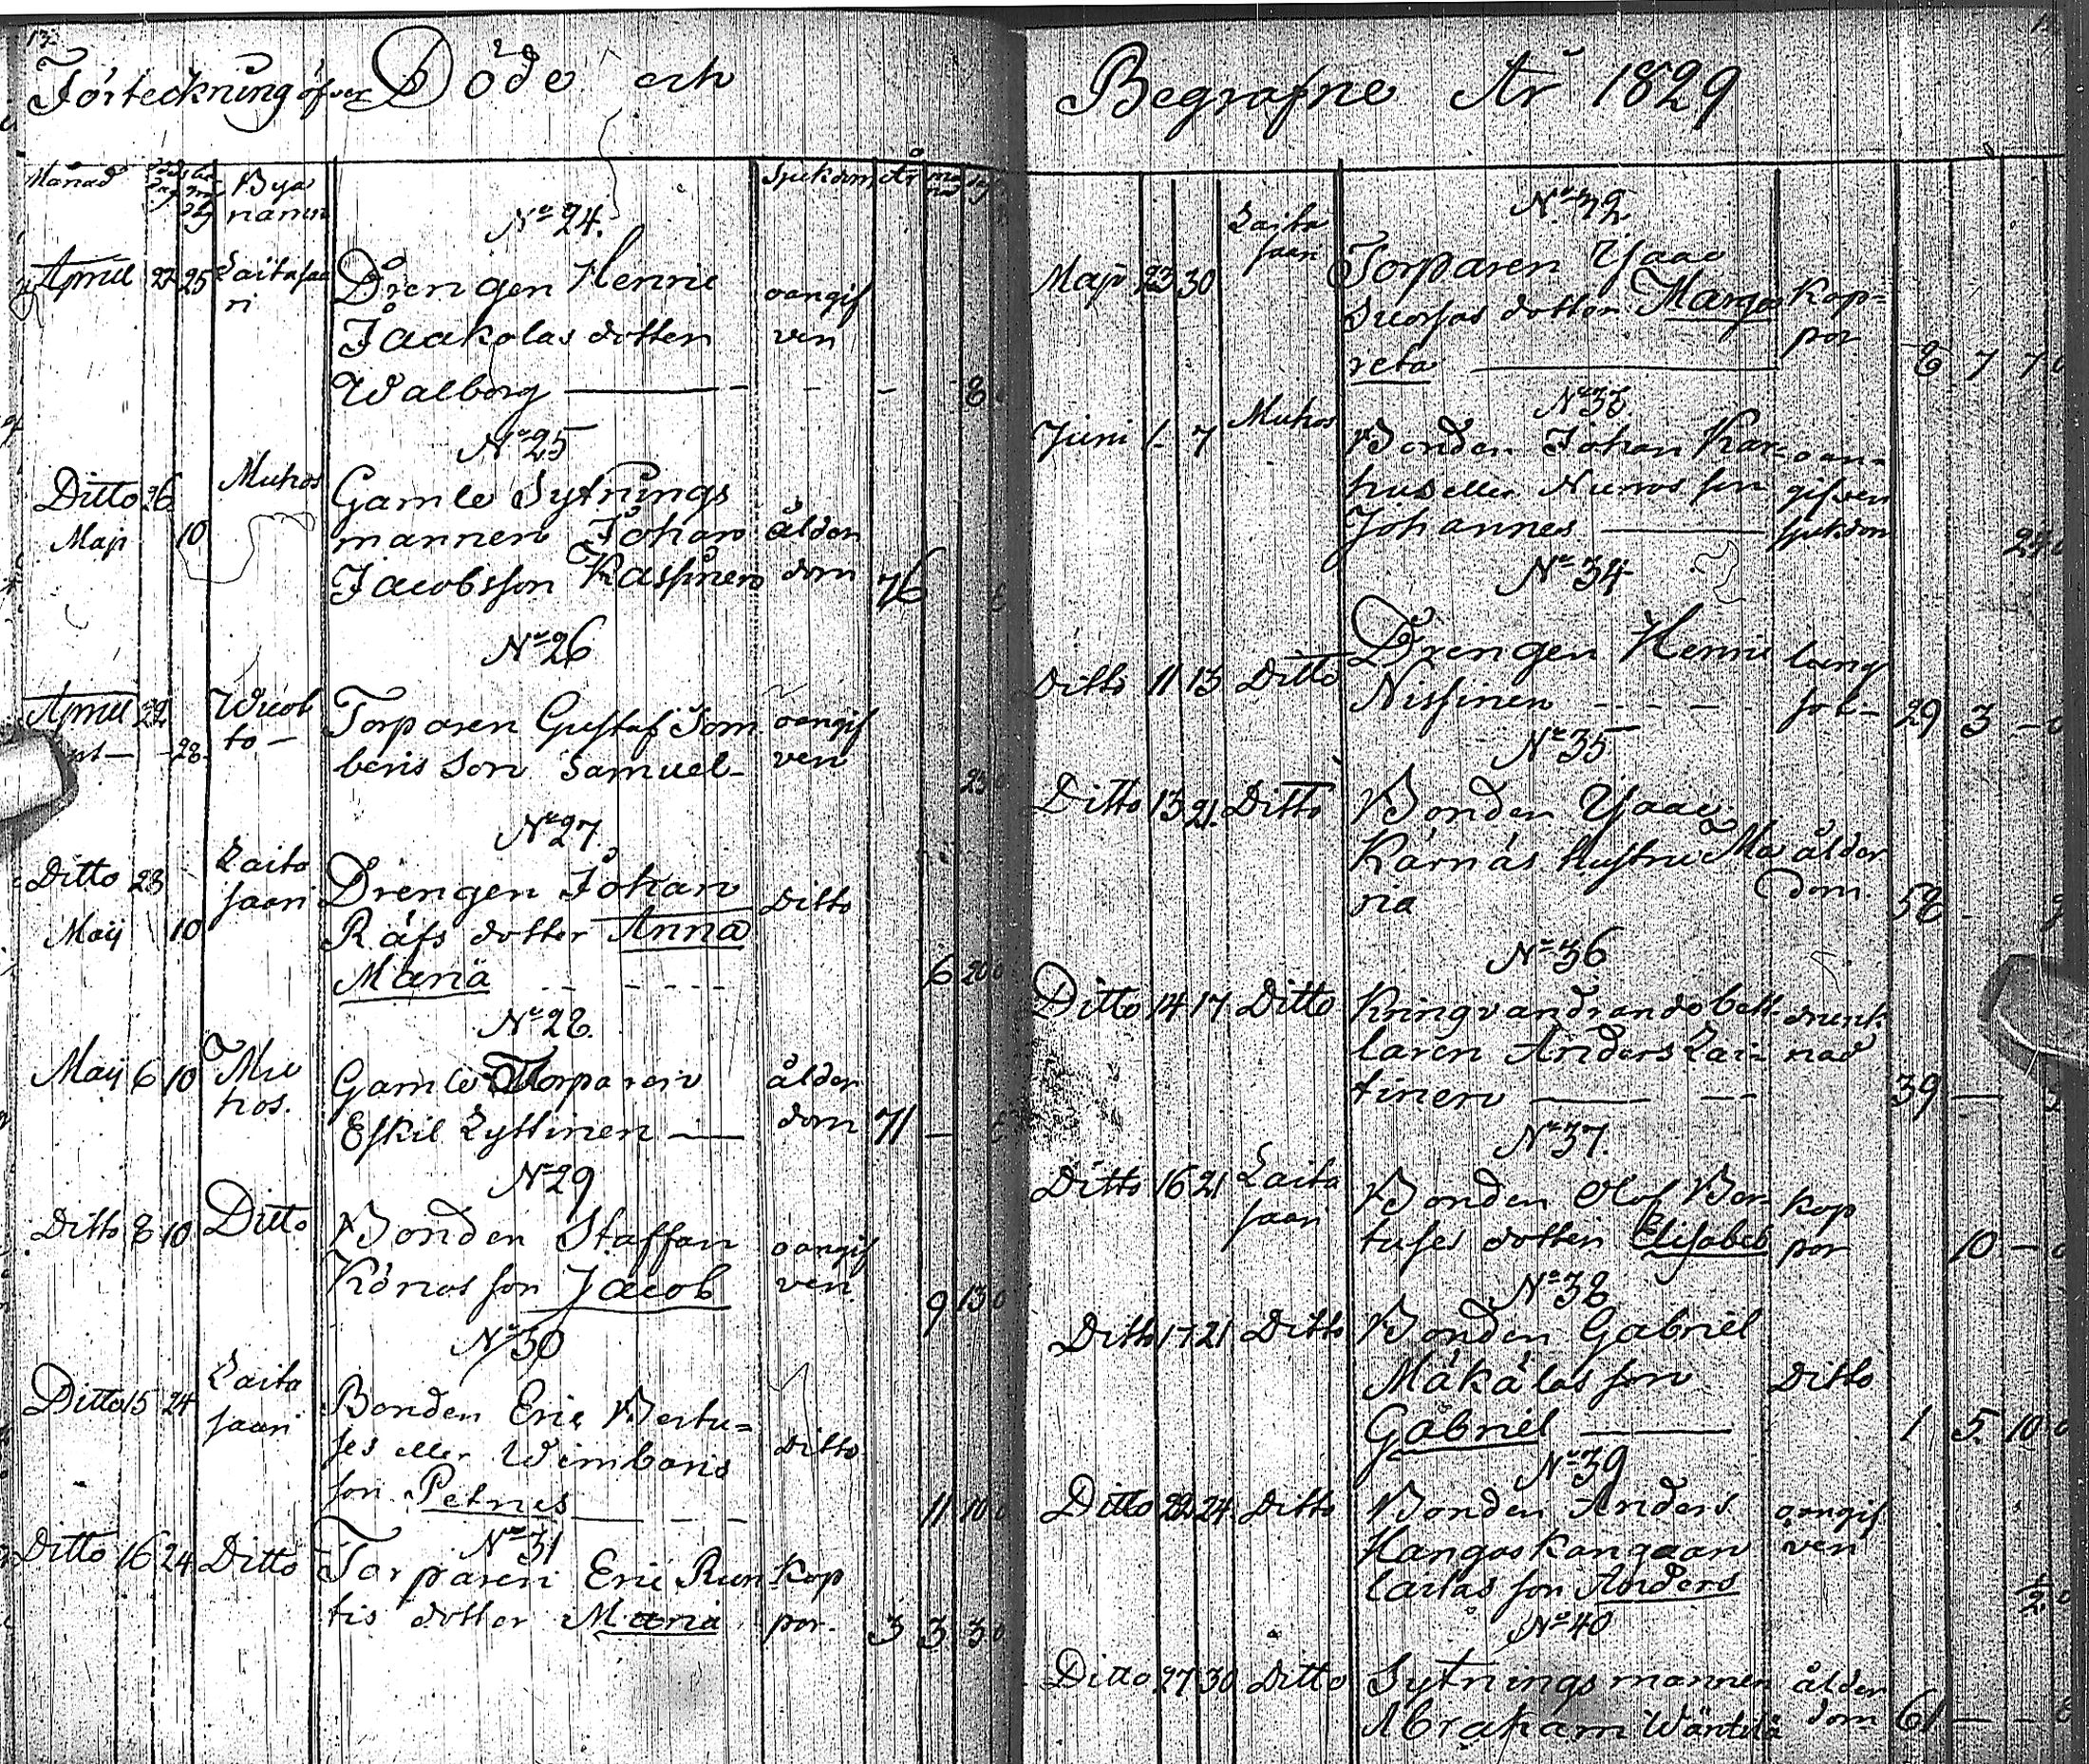 Förteckning öfver Döde och
Månad
Bya
namn
Sjukdom År
No 24.
April 22 25 Laitasaa
ri
Drengen Henric
Jaakolas dotter
Walborg
oangif
ven
8
No 25
Ditto 26
Maji 10
Muhos
Gamle Sytnings
mannen Johan
Jacobsson Kassinen
ålder
dom
76
No 26
April 22
28
to
Torparen Gustaf Tom
beris son Samuel
oangif
ven
No 27
Ditto 23
Maij 10
Laita
saari
Drengen Johan
Räfs dotter Anna
Maria
Ditto
6 20
No 28.
Maij 6 10 Mu
hos.
Gamle Torparen
Eskil Lyttinen
ålder
dom
71
No 29
Ditto 8 10 Ditto
Bonden Staffan
Könos son Jacob
oangif
ven
9 13
No 30
Ditto 15 24
Laita
saari
Bonden Eric Bertu=
ses eller Wimbaris
son Petrus
Ditto
11 10
No 31
Ditto 16 24 Ditto
Torparen Eric Run
tis dotter Maria
Kop
por.
3 3 3
Begrafne År 1829
No 32.
Maji 23 30
Laita
saari
Torparen Isaac
dotter Marga
reta
Kop=
por
8 7 7
No 33.
Juni 1 7 Muhos
Bonden Johan Kar
hus eller Nuros son
Johannes
oan=
gifven
sjukdom
No 34
Ditto 11 13 Ditto
Drengen Henric
Nissinen
lung
sot
29 3
No 35
Ditto 13 21. Ditto
Bonden Isaac
Kärnäs Hustru Ma
ria
ålder
dom.
58
No 36
Ditto 14 17 Ditto
Kringvandrande bett
laren Anders Lai
tinen
drunk
nad
39
No 37.
Ditto 16 21 Laita
saari
Bonden Olof Ber
tuses dotter Elisabeth
Kop
por
10
No 38
Ditto 17 21 Ditto
Bonden Gabriel
Mäkälas son
Gabriel
Ditto
1 5. 10
No 39
Ditto 22 24 Ditto
Bonden Anders
Hangaskangaan
laitas son Anders
oangif
ven
1/2
No 40
Ditto 27 30 Ditto
Sytningsmannen
Abraham Wäntilä
ålder
dom
61